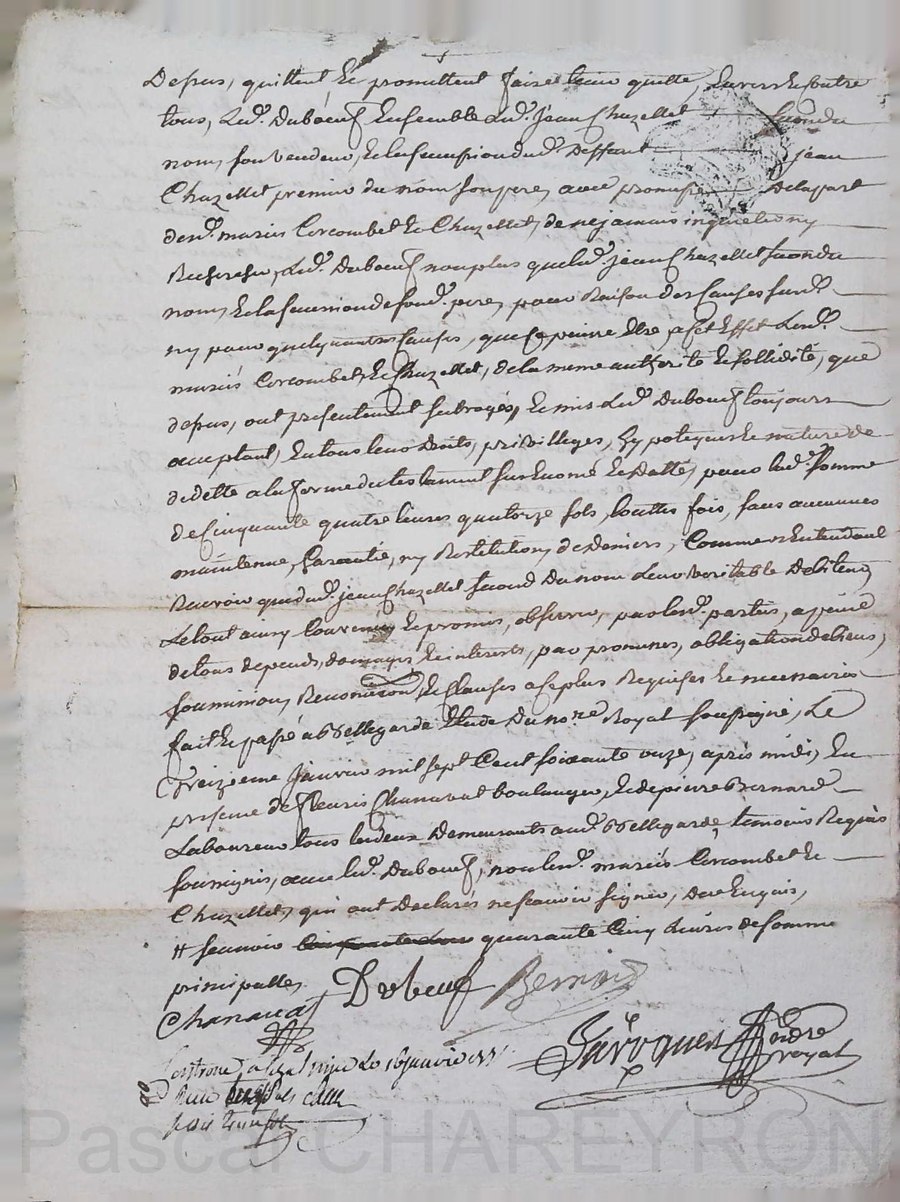 Depus, quittent, Et promettent faire tenir quitte, Envers Et Contre
tous, Led. Duboeuf Ensemble Led. jean Chazellet second du
nom, son vendeur, Et la succession dud. Deffunt jean
Chazellet premier du nom son pere, avec promesse De la part
desd. mariés Corcombet Et Chazellet, de ne jamais inquieter ny
Rechercher, Led. Duboeuf non plus que led. jean Chazellet second du
nom, Et la succession de sond. pere, pour Raison des Causes susd.
ny pour quelqu'autres Causes, que Ce puisse Etre, a Cet Effet Lesd.
mariés Corcombet, Et Chazellet, de la meme authorité Et sollidité, que
depus, ont presentement subrogés, Et mis Led. Duboeuf toujours
acceptant, En tous leurs Droits, privilleges, hypoteques Et nature de
de dette a la forme du testament susEnoncé Et Datté, pour lad. somme
de Cinquante quatre livres quatorze sols, touttes fois, sans aucunes
maintenue, Garantie, ny Restitution de Deniers, Comme n'Entendant
Recevoir que dud. jean Chazellet second du nom Leur veritable Debiteur,
Le tout ainsy Convenu Et promis, observer, par lesd. parties, a peine
de tous depends, domages Et interests, par promesses, obligation de biens,
soumissions, Renonciations, Et Clauses a Ce plus Requises Et necessaires
fait Et passé a Bellegarde Etude Du nore Royal soussigné, Le
Treizieme Janvier mil sept Cent soixante onze, apres midi, En
presence de fleuris Chanavat boulanger, Et de pierre Bernard
Laboureur tous les deux Demeurants aud. Bellegarde, temoins Requis
soussignés, avec led. Duboeuf, non lesd. mariés Corcombet Et
Chazellet, qui ont Declarés ne scavoir signer, De ce Enquis,
# scavoir quarante Cinq Livres de somme
principalle,
Chanavat Duboeuf Bernard
nore
royal
Controllé a le 16 janvier 1771
Recu